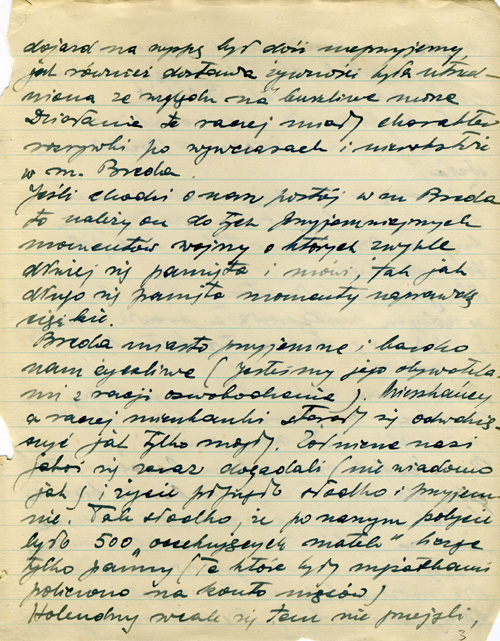 dojazd na wyspę był dość nieprzyjemny
jak również dostawa żywności była utrud-
niona ze względu na burzliwe morze
Działania te raczej miały charakter
rozrywki po wywczasach i
w m. Breda.
Jeśli chodzi o nasz postój w m Breda
to należy on do tych przyjemniejszych
momentów wojny o których zwykle
dłużej się pamięta i mówi, tak jak
długo się pamięta momenty naprawdę
ciężkie.
Breda miasto przyjemne i bardzo
nam życzliwe (jesteśmy jego obywatela-
mi z racji oswobodzenia). Mieszkańcy
a raczej mieszkanki starały się odwdzię-
czyć jak tylko mogły. Żołnierze nasi
jakoś się zaraz dogadali (nie wiadomo
jak) i życie płynęło słodko i przyjem-
nie. Tak słodko, że po naszym pobycie
było 500 „oczekujących matek" licząc
tylko panny (Te które były mężatkami
policzono na konto mężów)
Holendrzy wcale się tem nie przejęli,
3